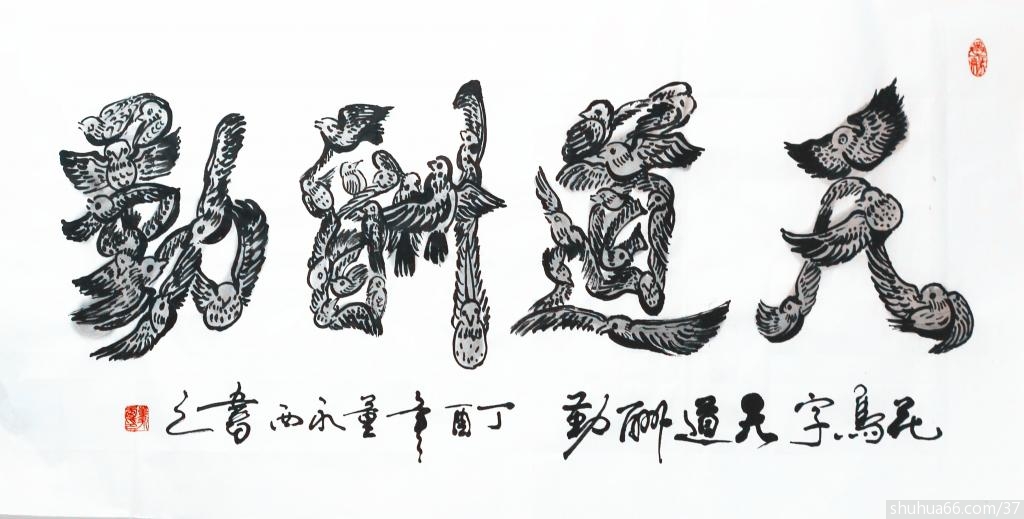 天道酬勤
花鳥字天道酬勤 丁酉年董永西書之
shuhua66.com/37